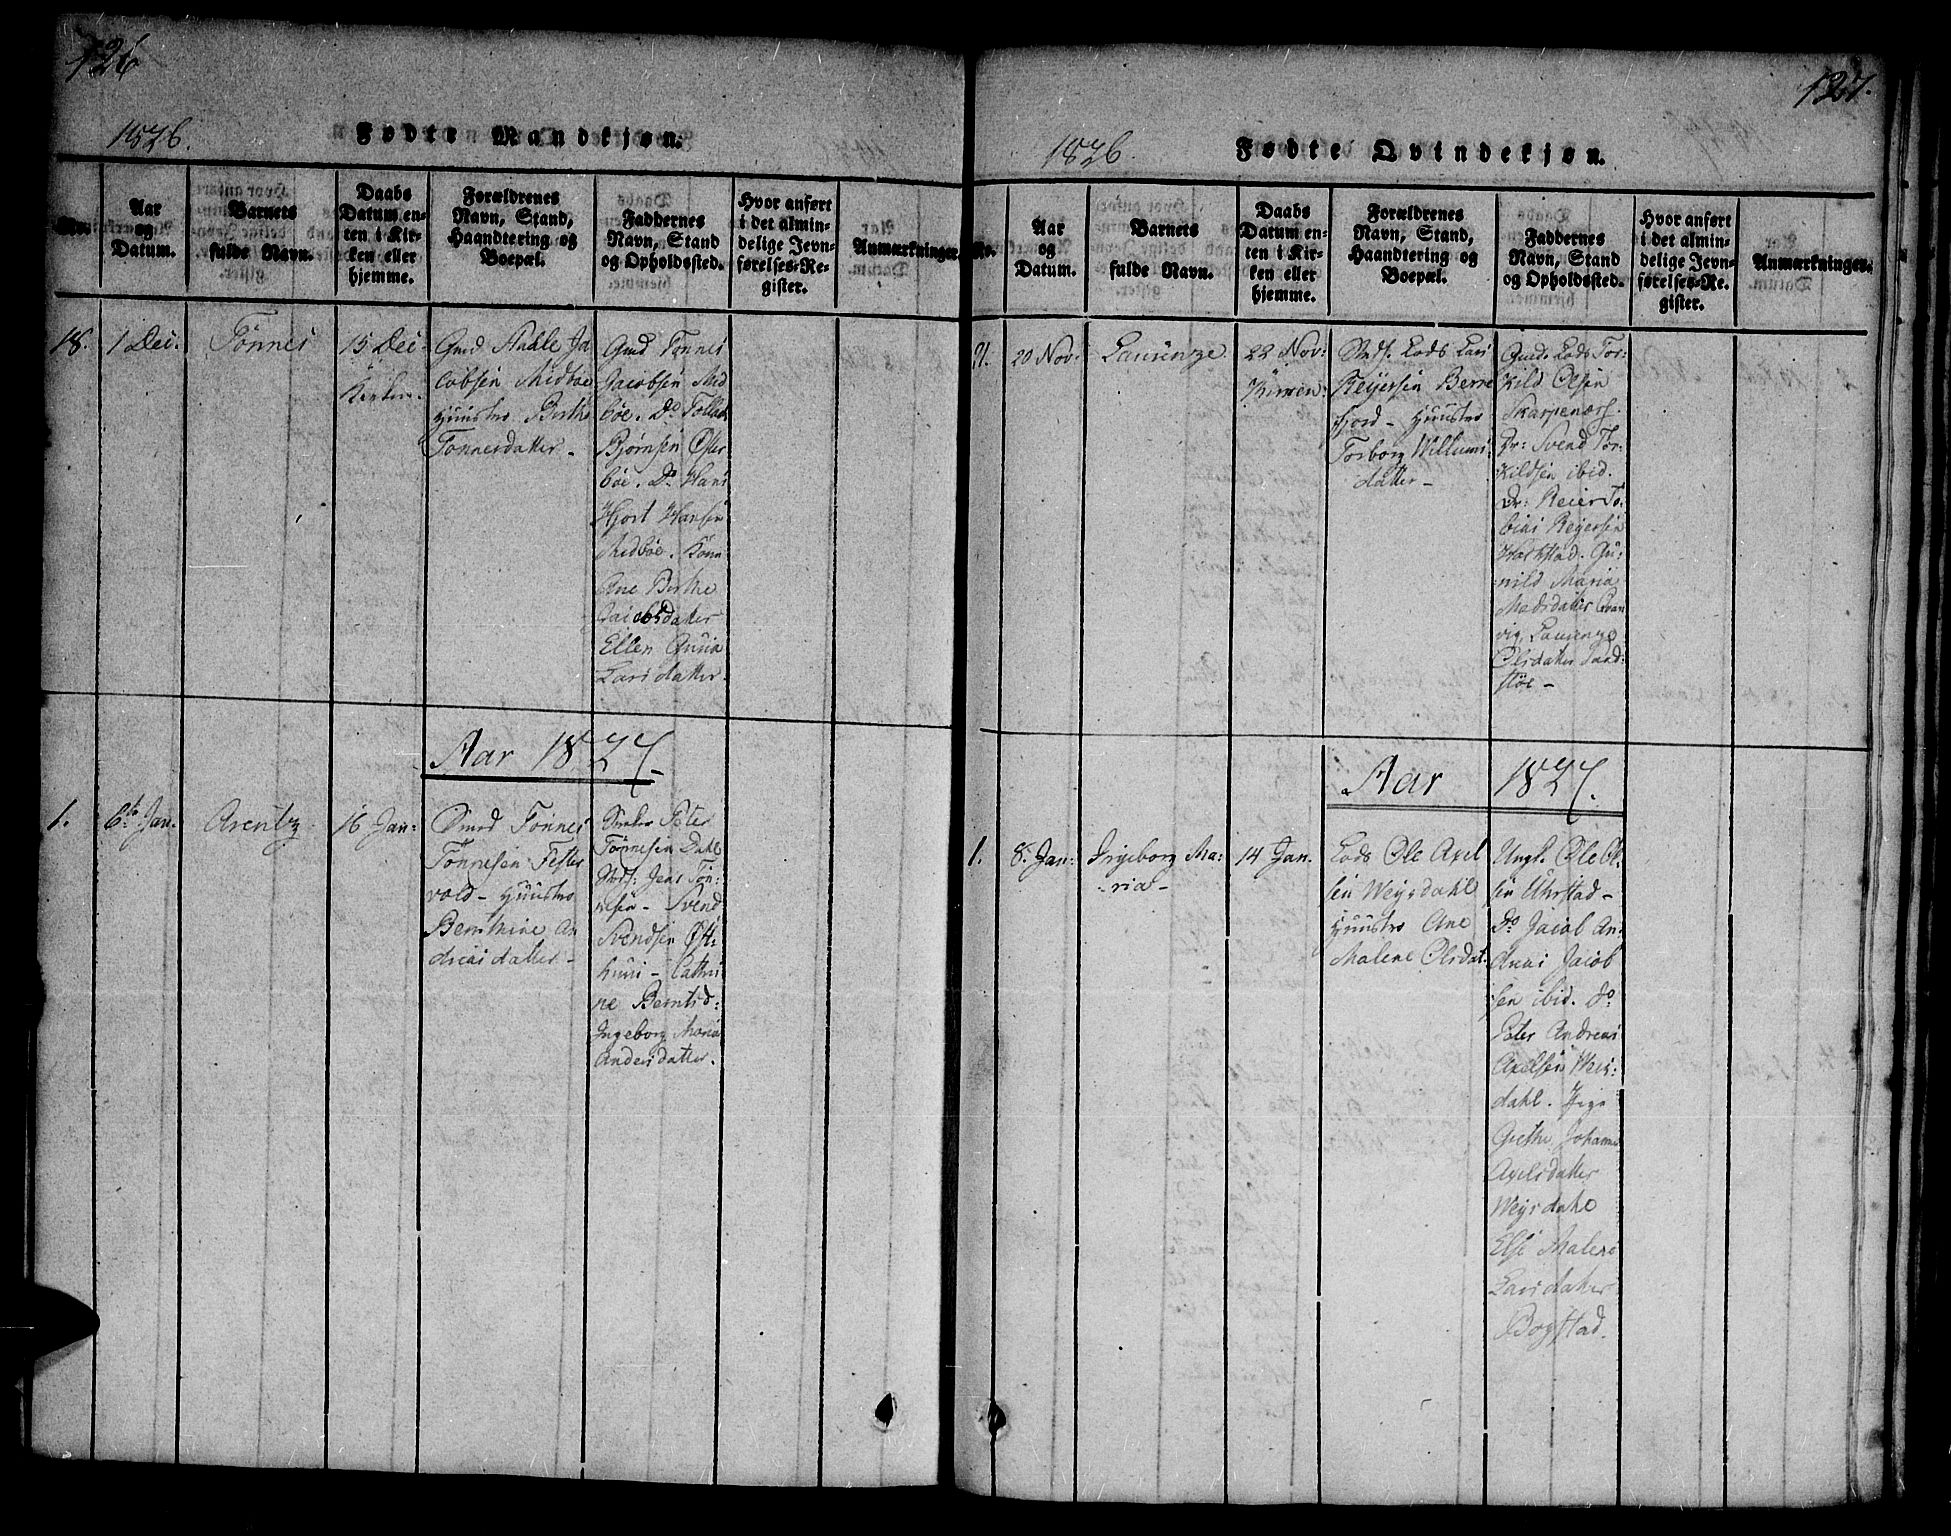 126
1826.
Fødte Mandkjøn.
No.
Aar
og
Datum.
Barnets
fulde Navn.
Daabs
Datum en-
ten i Kir-
ken eller
hjemme.
Forældrenes
Navn, Stand,
Haandtering og
Boepæl.
Faddernes
Navn, Stand
og Opholdssted.
Hvor anført
i det almin-
delige Jevn-
førelses-Re-
gister.
Anmærkninger.
18.
1 Dec.
Tønnes
15 Dec.
Kirken.
Gmd Aadle Ja
cobsen Midbøe
Huustro Berthe
Tønnesdatter -
Gmd Tønnes
Jacobsen Mid
bøe. Do
Bjørnsen Øster
bøe. Do Hans
Hjort Hansen
Midbøe. Kone
Ane Berthe
Jacobsdatter
Ellen
Larsdatter.
Aar 1827.
1.
6te Jan.
Arentz
16 Jan:
Smed Tønnes
Tønnesen Fester
vold - Huustro
Bernthine An
dreasdatter -
Peter
Tønnesen Dahl
Jens Tøn-
nesen - Svend
Svendsen Øst-
huus - Cathri
ne Berntsd:
Ingeborg Maria
Andersdatter.
127.
1826.
Fødte Qvindekjøn.
No.
Aar
og
Datum.
Barnets
fulde Navn.
Daabs
Datum en-
ten i Kir-
ken eller
hjemme.
Forældrenes
Navn, Stand,
Haandtering og
Boepæl.
Faddernes
Navn, Stand
og Opholdssted.
Hvor anført
i det almin-
delige Jevn-
førelses-Re-
gister.
Anmærkninger.
21.
20 Nov:
Laurenze
22 Nov:
Kirken:
Lods Lars
Reyersen Berne
fjord - Huustro
Torborg Willums
datter -
Gmd. Lods Tor-
kild Olsen
Skarpenæs.
Dr: Svend Tor-
kildsen ibid.
Dr: Reier To-
bias Reyersen
Gu-
nild Maria
Madsdatter Qvan
vig. Laurenze
Olsdatter Sand-
støe -
Aar 1827.
1.
8. Jan:
Ingeborg Ma-
ria -
14 Jan.
Lods Ole Axel
sen Weysdahl
Huustro Ane
Malene Olsdat.
Ungk. Ole Ol-
sen Uhrstad -
Do Jacob An-
dreas Jacob
sen ibid. Do
Peter Andreas
Axelsen Weis-
dahl. Pige
Grethe Johanne
Axelsdatter
Weysdahl
Else Malene
Larsdatter
Bogstad.